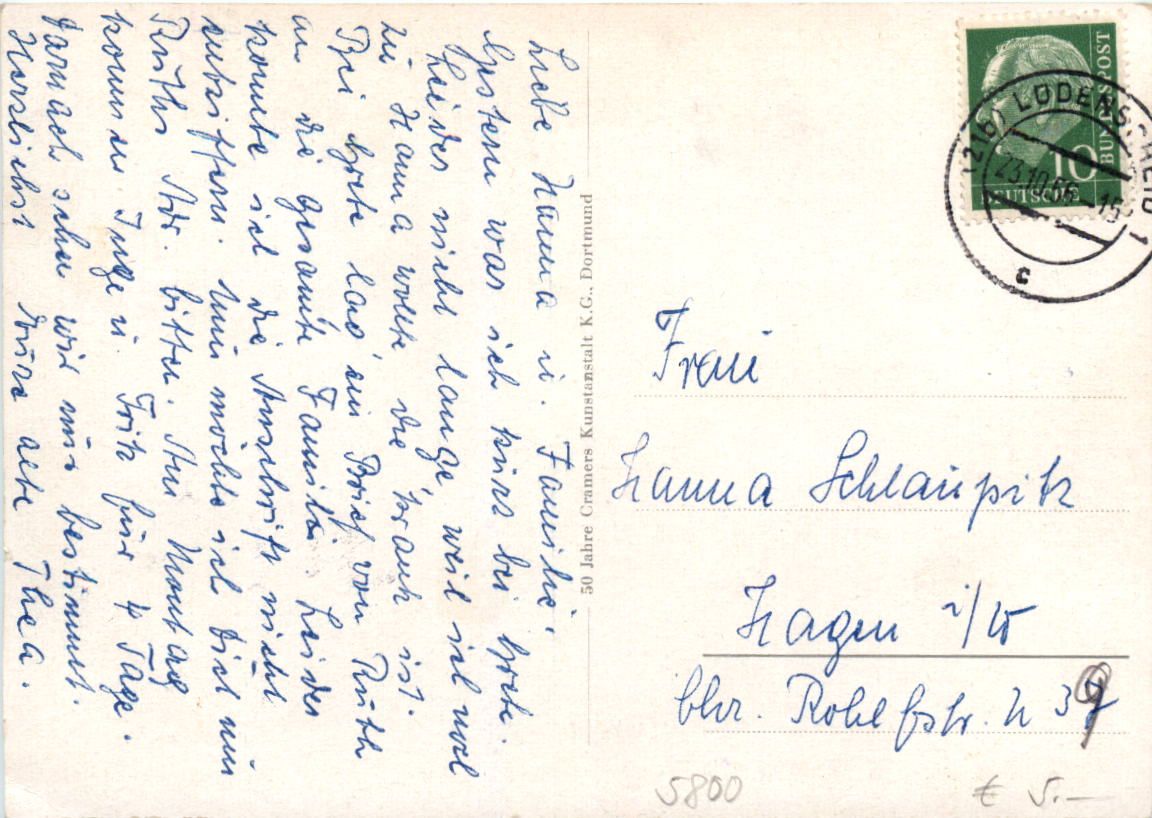 Liebe Hanna u. Familie.
Gestern war ich kurz bei Grete.
Leider nicht lange weil ich noch
zu Hanna wollte die krank ist.
Bei Grete las' ein Brief von Ruth
an die gesamte Familie. Leider
konnte ich die Anschrift nicht
entziffern. Nun möchte ich Dich um
Ruths Adr. bitten. Am Montag
kommen Inge u. Fritz für 4 Tage.
Danach sehen wir uns bestimmt.
Herzlichst Eure alte Thea.
50 Jahre Cramers Kunstanstalt K.G., Dortmund
(21b) LÜDENSCHEID 1
23.10.56-15
c
10
DEUTSCHE
BUNDESPOST
Frau
Hanna Schlaupitz
Hagen i/W
Rohlfstr. 39
5800
€ 5.-